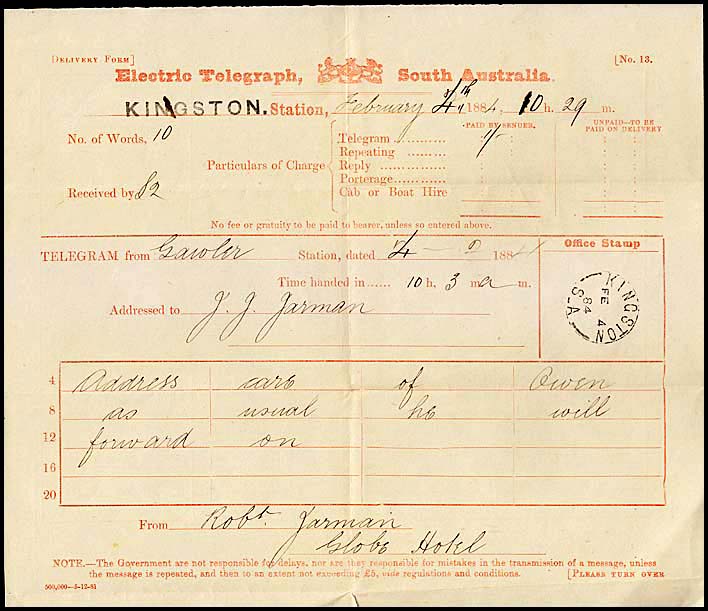 DELIVERY FORM] [No. 13.
Electric Telegraph, South Australia.
KINGSTON. Station, February 4th 1884. 10 h. 29 m.
No. of Words, 10
Received by
Particulars of Charge
PAID BY SENDER. UNPAID—TO BE PAID ON DELIVERY
Telegram 1/-
Repeating
Reply
Porterage
Cab or Boat Hire
No fee or gratuity to be paid to bearer, unless so entered above.
TELEGRAM from Gawler Station, dated 4 - 2 1884
Time handed in 10 h. 3 m a m.
Addressed to J. J. Jarman
Office Stamp
KINGSTON
FE 4
84
S.A
4 Address care of Owen
8 as usual he will
12 forward on
16
20
From Robt. Jarman
Globe Hotel
NOTE.—The Government are not responsible for delays, nor are they responsible for mistakes in the transmission of a message, unless
the message is repeated, and then to an extent not exceeding £5, vide regulations and conditions. [PLEASE TURN OVER
500,000—5-12-81